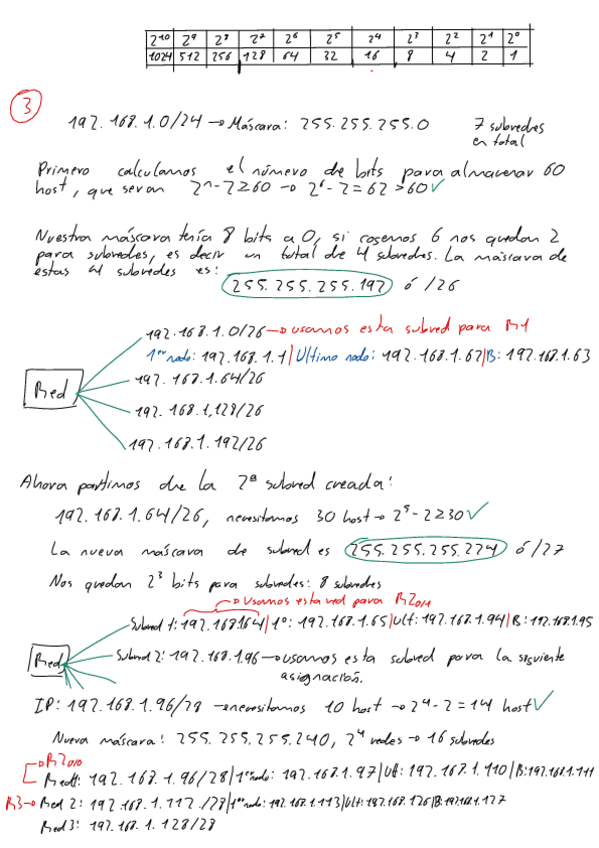 2¹⁰ 2⁹ 2⁸ 2⁷ 2⁶ 2⁵ 2⁴ 2³ 2² 2¹ 2⁰
1024 512 256 128 64 32 16 8 4 2 1
3
192.168.1.0/24 → Máscara: 255.255.255.0 7 subredes
en total
Primero calculamos el número de bits para almacenar 60
host, que seran 2ⁿ-2≥60 → 2⁶-2=62>60✓
Nuestra máscara tenía 8 bits a 0, si cogemos 6 nos quedan 2
para subredes, es decir un total de 4 subredes. La máscara de
estas 4 subredes es:
255.255.255.192 ó /26
192.168.1.0/26 → usamos esta subred para R1
1er nodo: 192.168.1.1 | Ultimo nodo: 192.168.1.62 | B: 192.168.1.63
Red
192.168.1.64/26
192.168.1,128/26
192.168.1.192/26
Ahora partimos de la 2ª subred creada:
192.168.1.64/26, necesitamos 30 host → 2⁵-2≥30✓
La nueva máscara de subred es 255.255.255.224 ó /27
Nos quedan 2³ bits para subredes: 8 subredes
→ Usamos esta red para R2011
Subred 1: 192.168.1.64 | 1º: 192.168.1.65 | Ult: 192.168.1.94 | B: 192.168.1.95
Red
Subred 2: 192.168.1.96 → usamos esta subred para la siguiente
asignación.
IP: 192.168.1.96/28 → necesitamos 10 host → 2⁴-2=14 host✓
Nueva máscara: 255.255.255.240, 2⁴ redes → 16 subredes
→ R2010
Red1: 192.168.1.96/28 | 1er nodo: 192.168.1.97 | Ult: 192.168.1.110 | B: 192.168.1.111
R3 → Red 2: 192.168.1.112./28 | 1er nodo: 192.168.1.113 | Ult: 192.168.126 | B: 192.168.1.127
Red 3: 192.168.1.128/28